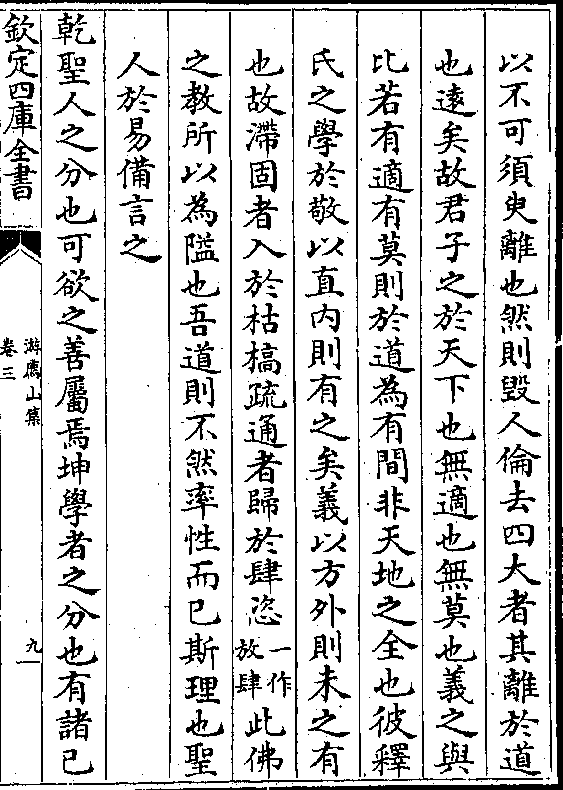 以不可須臾離也然則毀人倫去四大者其離於道
也逺矣故君子之於天下也無適也無莫也義之與
比若有適有莫則於道為有間非天地之全也彼釋
氏之學於敬以直内則有之矣義以方外則未之有
也故滯固者入於枯槁疏通者歸於肆恣一作放肆此佛
之教所以為隘也吾道則不然率性而已斯理也聖
人於易備言之
乾聖人之分也可欲之善屬焉坤學者之分也有諸已
欽定四庫全書
游廌山集
卷三
九